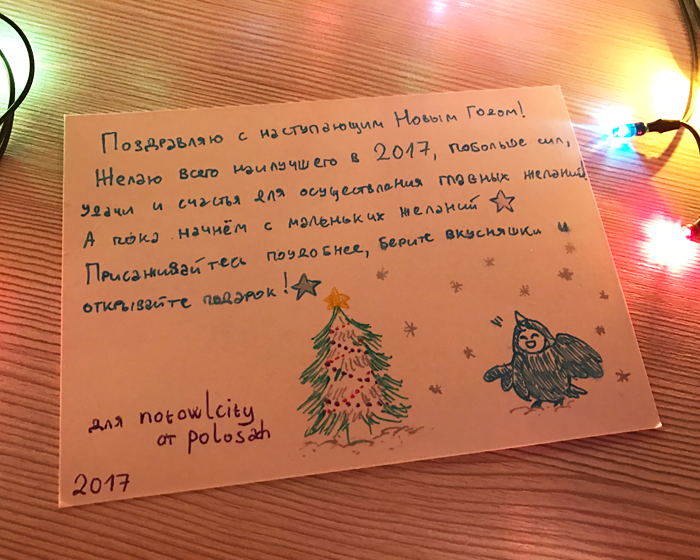 Поздравляю с наступающим Новым Годом!
Желаю всего наилучшего в 2017, побольше сил,
удачи и счастья для осуществления главных желаний
А пока начнём с маленьких желаний
Присаживайтесь поудобнее, берите вкусняшки и
открывайте подарок!
для notowlcity
от polosah
2017